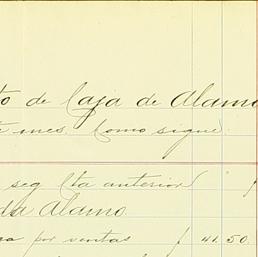 to de Caja de Alamo
mes. Como sigue
seg Cta anterior
da Alamo
por ventas 41.50